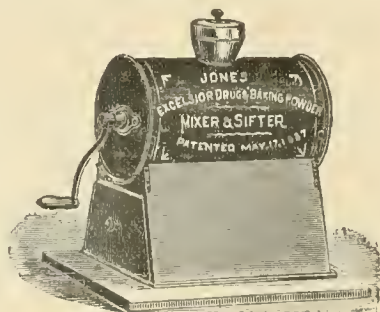 JONES
EXCELSIOR DRUG & BAKING POWDER
MIXER & SIFTER
PATENTED MAY. 17. 1887